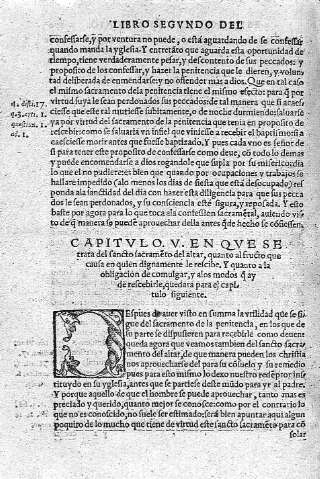 LIBRO SEGVNDO DEL
confessarse, y por ventura no puede, o está aguardando de se confessar
quando manda la yglesia. Y entretãto que aguarda esta oportunidad de
tiempo, tiene verdaderamente pesar, y descontento de sus peccados: y
proposito de los confessar, y hazer la penitencia que le dieren, y volun
tad deliberada de enmendarse: y no offender mas a dios. Que en tal caso
el mismo sacramento dela penitencia tiene el mismo efecto: para q̃ por
virtud suya le sean perdonados sus peccados: de tal manera que si acaes
ciesse que este tal muriesse subitamente, o de noche durmiendo: saluarse
ya por virtud del sacramento de la penitencia que tenia en proposito de
rescebir: como se saluaria vn infiel que viniesse a recebir el baptismo: si a
caesciesse morir antes que fuesse baptizado. Y pues cada vno es señor de
si para tener este proposito de confessarse como deue, cõ todo lo demas
y puede encomendarse a dios rogandole que supla por su misericordia
lo que el no pudiere: es bien que quando por occupaciones y trabajos se
hallare impedido (alo menos los dias de fiesta que está desoccupado) res
ponda ala sanctidad del dia con hazer esta diligencia para que sus pecca
dos le sean perdonados, y su consciencia esté segura, y reposada. Y esto
baste por agora para lo que toca ala confession sacramẽtal, auiendo vis
to de q̃ manera se puede aprouechar della antes que de hecho se cõfiessen.
q. disti. 17.
q. 3. arti. 1.
question. 1.
CAPITVLO. V. EN QVE SE
trata del sancto sacramẽto del altar, quanto al fructo que
causa en quien dignamente le rescibe. Y quanto a la
obligacion de comulgar, y alos modos q̃ ay
de rescebirle, quedara para el capi
tulo siguiente.
DEspues de auer visto en summa la vtilidad q̃ se si
gue del sacramento de la penitencia, en los que de
su parte se dispusieren para rescebirle como deuen:
queda agora que veamos tambien del sancto sacra
mento del altar, de que manera pueden los christia
nos aprouecharse del para su cõsuelo y su remedio
pues para esto mismo lo dexo nuestro redẽptor ins
tituydo en su yglesia, antes que se partiesse deste mũdo para yr al padre.
Y porque aquello de que el hombre se puede aprouechar, tanto mas es
preciado y querido, quanto mejor se conosce: como por el contrario lo
que no es conoscido, no suele ser estimado: será bien apuntar aqui algun
poquito de lo mucho que tiene de virtud este sancto sacramẽto para cõ
solar